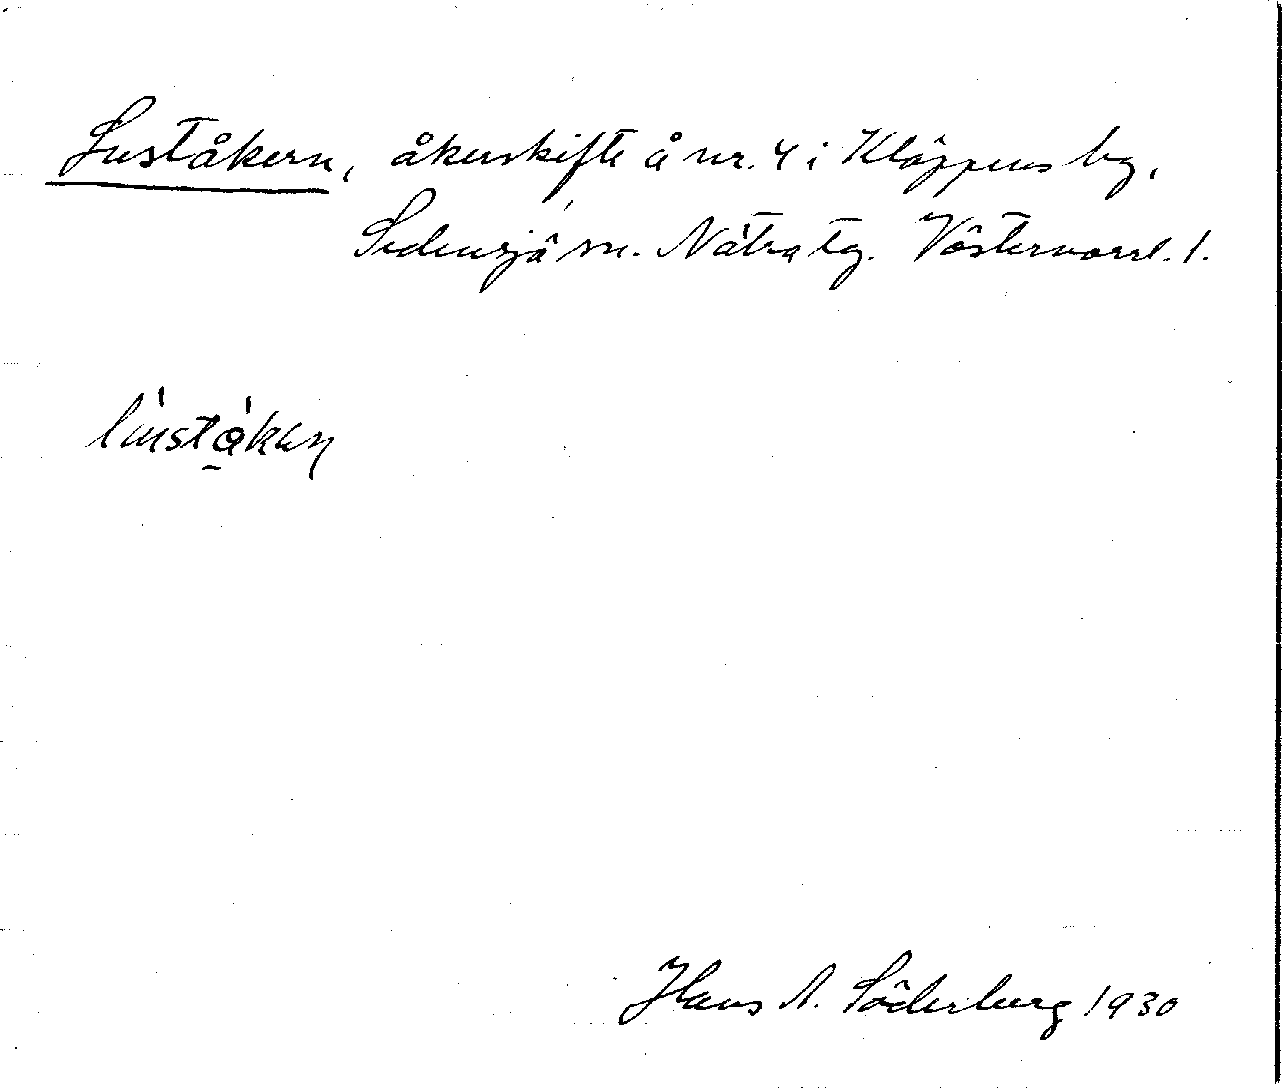 Luståkern, åkerskifte å nr. 4 i Kläppens by,
Sidensjö sn. Nätra tg. Västernorrl. l.
Hans A. Söderberg 1930